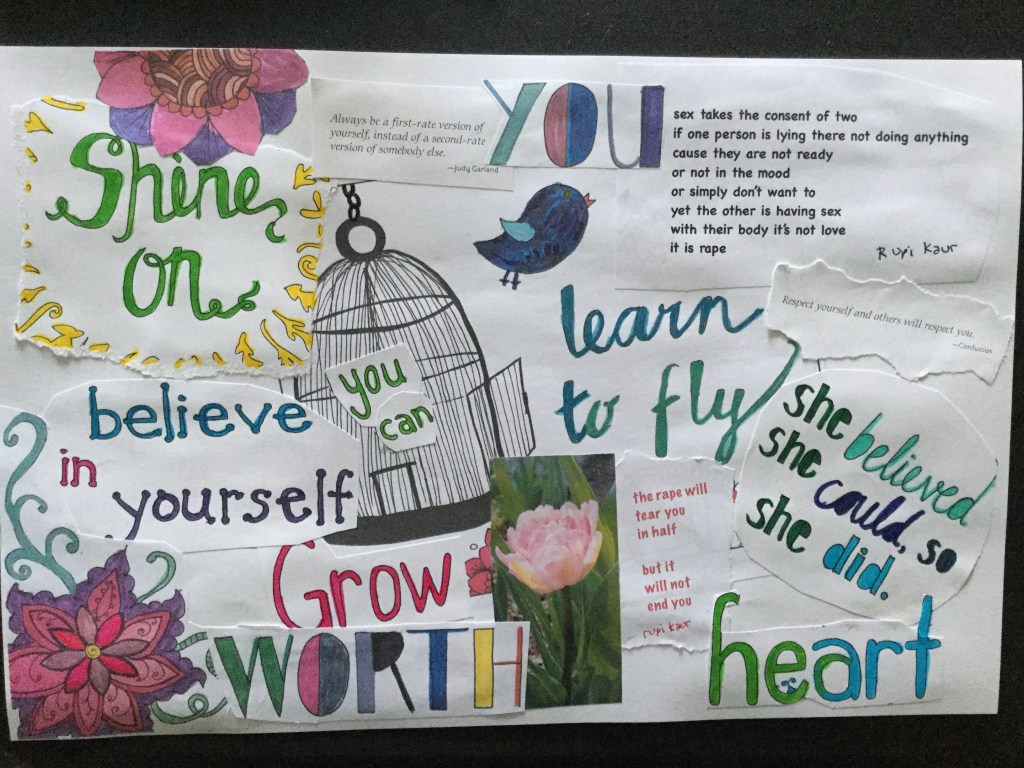 Shine
on
Always be a first-rate version of
yourself, instead of a second-rate
version of somebody else.
—Judy Garland
YOU
sex takes the consent of two
if one person is lying there not doing anything
cause they are not ready
or not in the mood
or simply don't want to
yet the other is having sex
with their body it's not love
it is rape
Rupi Kaur
learn
to fly
Respect yourself and others will respect you.
—Confucius
you
can
believe
in
yourself
she believed
she could, so
she did.
Grow
WORTH
the rape will
tear you
in half
but it
will not
end you
rupi kaur
heart